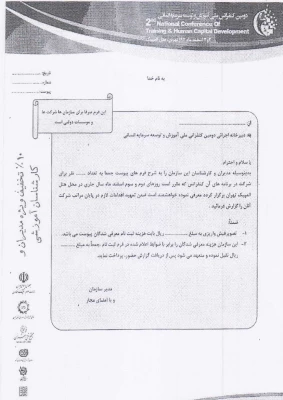 دومین کنفرانس ملی آموزش و توسعه سرمایه انسانی
2nd National Conference Of
Training & Human Capital Development
تاریخ:
شماره:
پیوست:
به نام خدا
این فرم صرفا برای سازمان ها شرکت ها
و موسسات دولتی است.
از:
به: دبیرخانه اجرائی دومین کنفرانس ملی آموزش و توسعه سرمایه انسانی
با سلام و احترام
بدینوسیله مدیران و کارشناسان این سازمان را به شرح فرم های پیوست جمعا به تعداد ..... نفر برای
شرکت در برنامه های آن کنفرانس که مقرر است روزهای دوم و سوم اسفند ماه سال جاری در محل هتل
المپیک تهران برگزار گردد معرفی نموده خواهشمند است ضمن تمهید اقدامات لازم در پایان مراتب شرکت
آنان را گزارش فرمائید.
ضمناً:
تصویر فیش واریزی به مبلغ ........ ریال بابت هزینه ثبت نام معرفی شدگان پیوست می باشد.
این سازمان هزینه معرفی شدگان را برابر با ضوابط اعلام شده در فرم ثبت نام جمعاً به مبلغ
ریال تقبل نموده و متعهد می شود پس از دریافت گزارش حضور، پرداخت نماید.
مدیر سازمان
و یا امضای مجاز
۱۰٪ تخفیف ویژه مدیران و
کارشناسان آموزشی